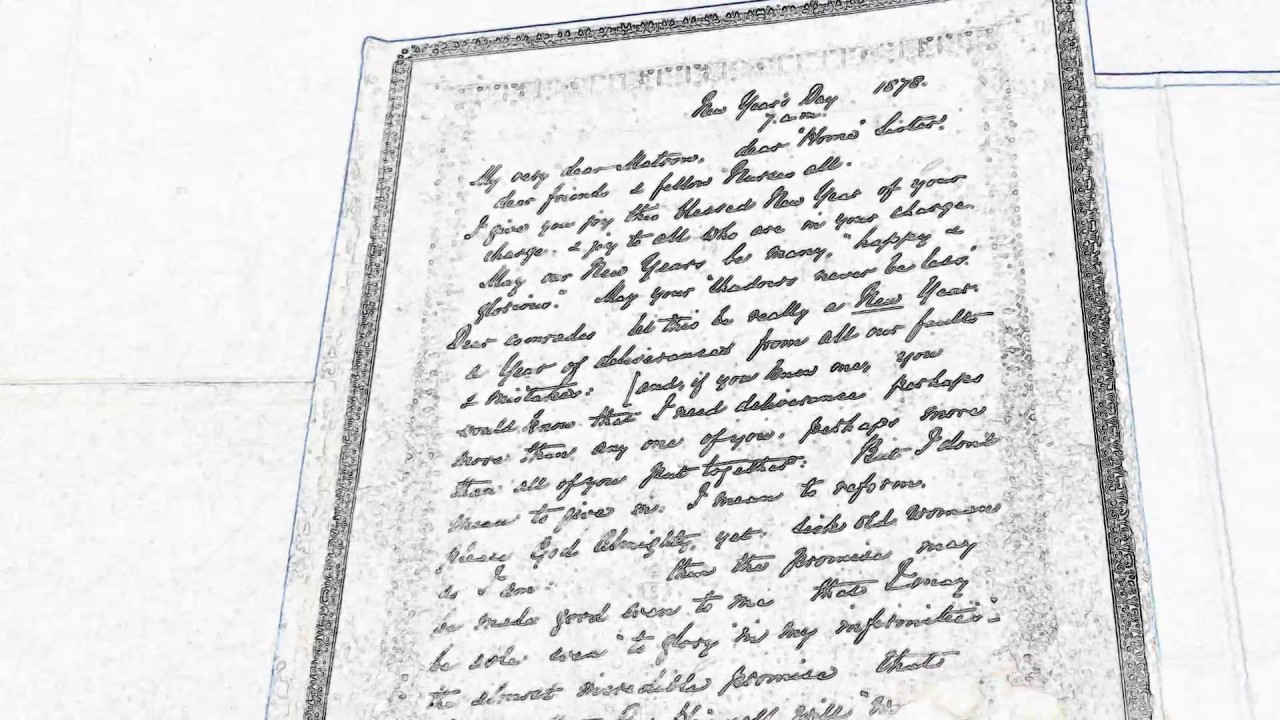 New Year's Day 1878.
7. a.m.
My very dear Matron, dear "Home" Sister,
dear friends & fellow Nurses all.
I give you joy this blessed New Year of your
charge, & joy to all who are in your charge.
May our New Years be many, "happy &
glorious." May your "shadows never be less."
Dear comrades let this be really a New Year:
a Year of deliverances from all our faults
& mistakes: [and, if you knew one, you
would know that I need deliverance perhaps
more than any one of you, perhaps more
than all of you put together: But I don't
mean to give in. I mean to reform,
please God Almighty, yet: sick old woman
as I am: then the promise may
be made good even to me that I may
be able even "to glory in my infirmities":
the almost incredible promise that
Himself will "